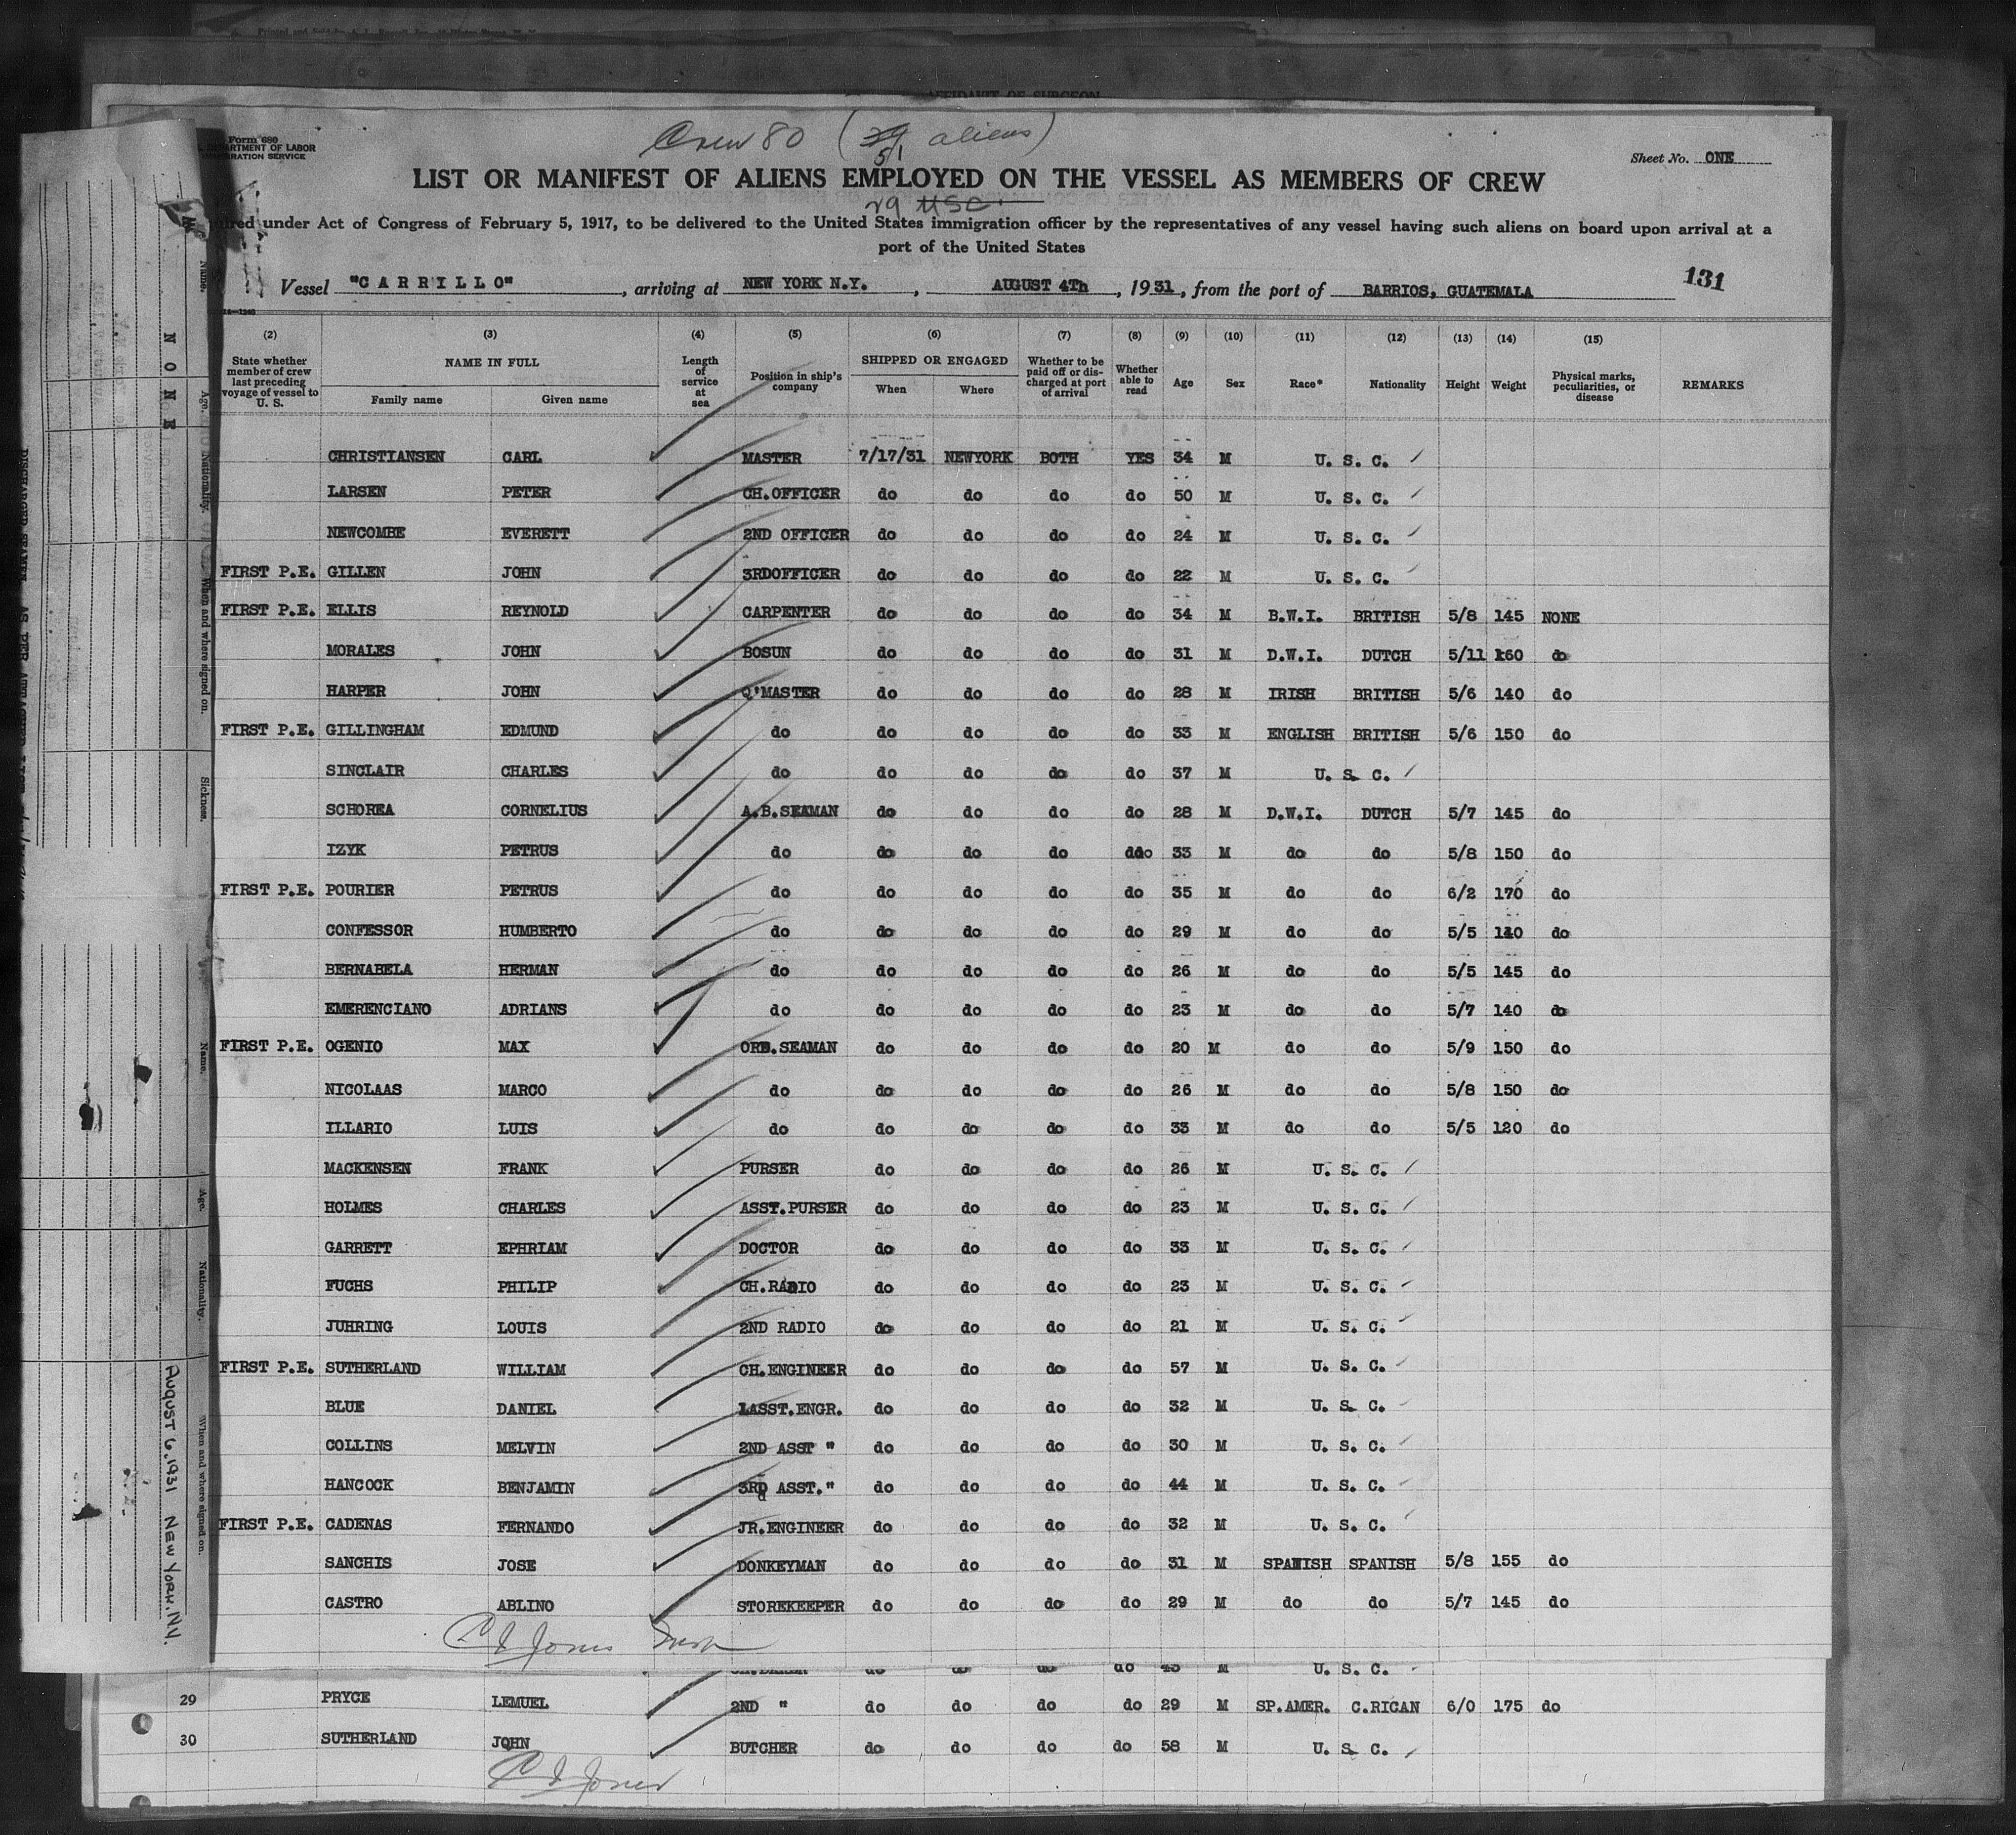 AFFIDAVIT OF SURGEON
Form 680
DEPARTMENT OF LABOR
IMMIGRATION SERVICE
Crew 80 (51 aliens)
Sheet No. ONE
LIST OR MANIFEST OF ALIENS EMPLOYED ON THE VESSEL AS MEMBERS OF CREW
29 USC
under Act of Congress of February 5, 1917, to be delivered to the United States immigration officer by the representatives of any vessel having such aliens on board upon arrival at a
port of the United States
Vessel "CARRILLO", arriving at NEW YORK N.Y., AUGUST 4Th, 1931, from the port of BARRIOS, GUATEMALA 131
(2) (3) (4) (5) (6) (7) (8) (9) (10) (11) (12) (13) (14) (15)
State whether member of crew last preceding voyage of vessel to U. S. NAME IN FULL Family name Given name Length of service at sea Position in ship's company SHIPPED OR ENGAGED When Where Whether to be paid off or discharged at port of arrival Whether able to read Age Sex Race* Nationality Height Weight Physical marks, peculiarities, or disease REMARKS
CHRISTIANSEN CARL MASTER 7/17/31 NEWYORK BOTH YES 34 M U. S. C.
LARSEN PETER CH.OFFICER do do do do 50 M U. S. C.
NEWCOMBE EVERETT 2ND OFFICER do do do do 24 M U. S. C.
FIRST P.E. GILLEN JOHN 3RDOFFICER do do do do 22 M U. S. C.
FIRST P.E. ELLIS REYNOLD CARPENTER do do do do 34 M B.W.I. BRITISH 5/8 145 NONE
MORALES JOHN BOSUN do do do do 31 M D.W.I. DUTCH 5/11 160 do
HARPER JOHN Q'MASTER do do do do 28 M IRISH BRITISH 5/6 140 do
FIRST P.E. GILLINGHAM EDMUND do do do do do 33 M ENGLISH BRITISH 5/6 150 do
SINCLAIR CHARLES do do do do do 37 M U. S. C.
SCHOREA CORNELIUS A.B.SEAMAN do do do do 28 M D.W.I. DUTCH 5/7 145 do
IZYK PETRUS do do do do ddo 33 M do do 5/8 150 do
FIRST P.E. POURIER PETRUS do do do do do 35 M do do 6/2 170 do
CONFESSOR HUMBERTO do do do do do 29 M do do 5/5 do
BERNABELA HERMAN do do do do do 26 M do do 5/5 145 do
EMERENCIANO ADRIANS do do do do do 23 M do do 5/7 140 do
FIRST P.E. OGENIO MAX ORD.SEAMAN do do do do 20 M do do 5/9 150 do
NICOLAAS MARCO do do do do do 26 M do do 5/8 150 do
ILLARIO LUIS do do do do do 33 M do do 5/5 120 do
MACKENSEN FRANK PURSER do do do do 26 M U. S. C.
HOLMES CHARLES ASST.PURSER do do do do 23 M U. S. C.
GARRETT EPHRIAM DOCTOR do do do do 33 M U. S. C.
FUCHS PHILIP CH.RADIO do do do do 23 M U. S. C.
JUHRING LOUIS 2ND RADIO do do do do 21 M U. S. C.
FIRST P.E. SUTHERLAND WILLIAM CH.ENGINEER do do do do 57 M U. S. C.
BLUE DANIEL 1ASST.ENGR. do do do do 32 M U. S. C.
COLLINS MELVIN 2ND ASST " do do do do 30 M U. S. C.
HANCOCK BENJAMIN 3RD ASST." do do do do 44 M U. S. C.
FIRST P.E. CADENAS FERNANDO JR.ENGINEER do do do do 32 M U. S. C.
SANCHIS JOSE DONKEYMAN do do do do 31 M SPANISH SPANISH 5/8 155 do
CASTRO ABLINO STOREKEEPER do do do do 29 M do do 5/7 145 do
C I Jones
do do do do 43 M U. S. C.
29 PRYCE LEMUEL 2ND " do do do do 29 M SP.AMER. C.RICAN 6/0 175 do
30 SUTHERLAND JOHN BUTCHER do do do do 58 M U. S. C.
C I Jones
NONE
Name. Age. Nationality. When and where signed on. Sickness.
Name. Age. Nationality. When and where signed on.
AUGUST 6, 1931 NEW YORK, N.Y.